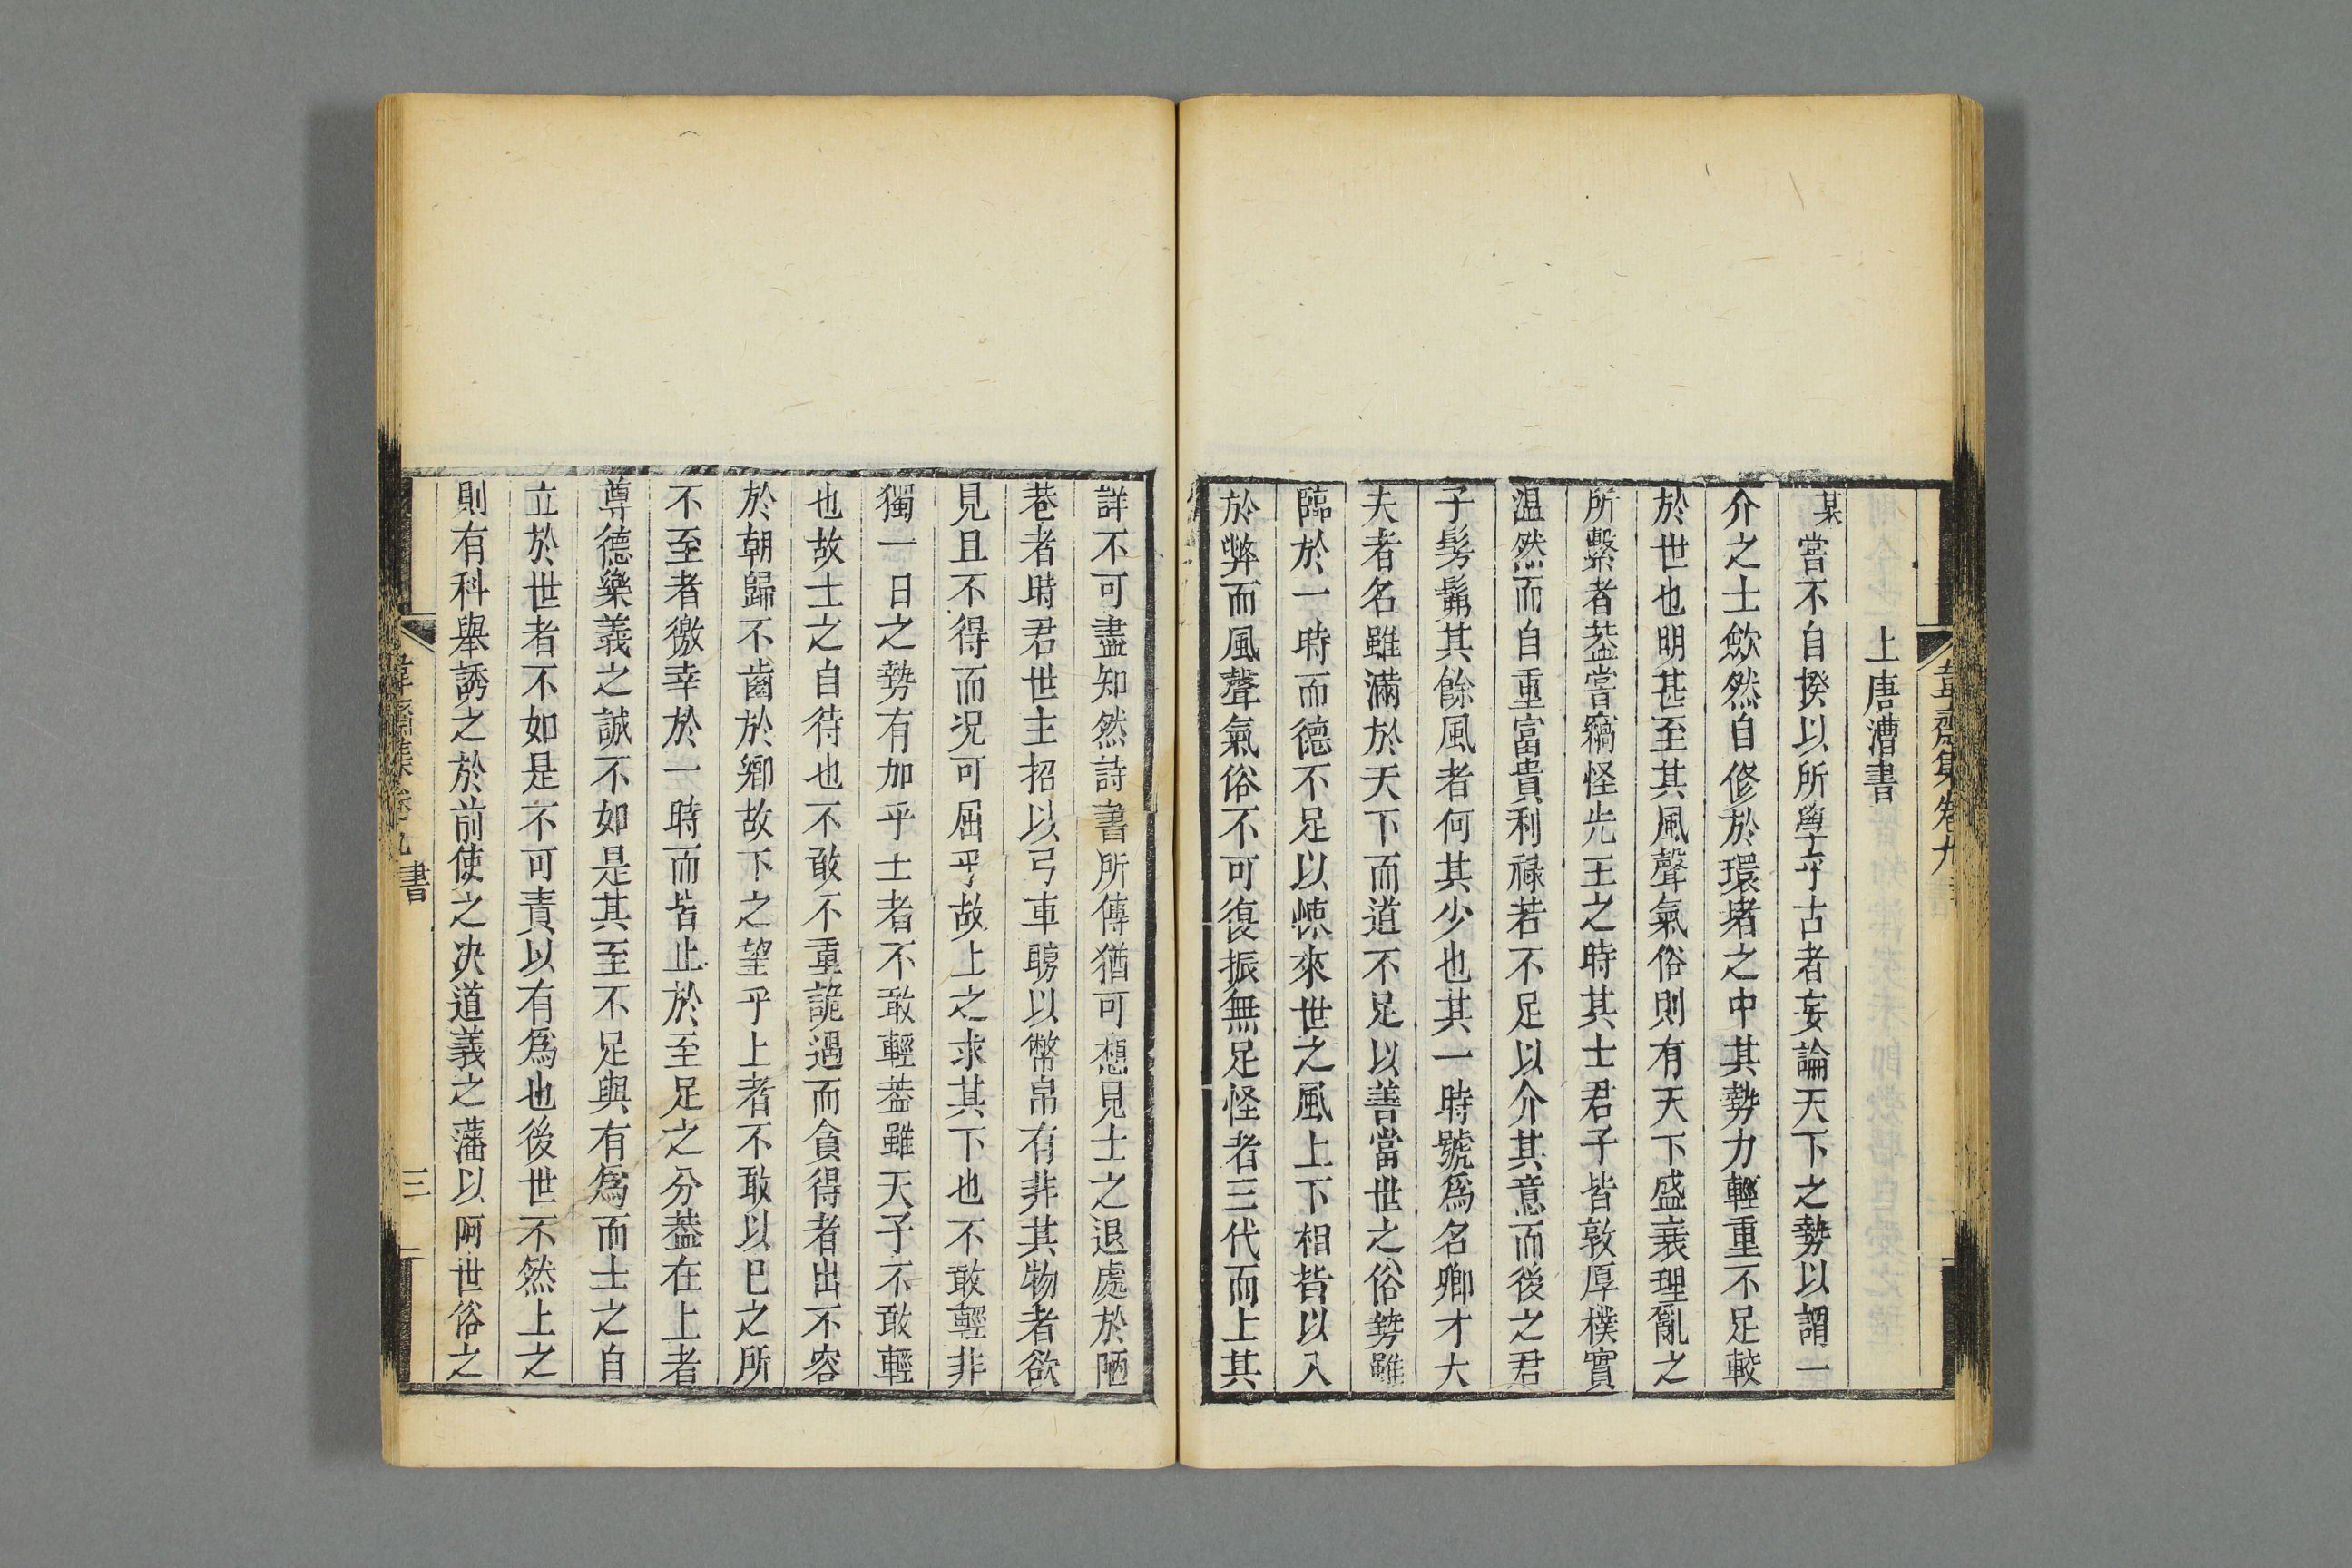 韋齋集卷九
上唐漕書
某嘗不自揆以所學乎古者妄論天下之勢以謂一
介之士歛然自修於環堵之中其勢力輕重不足較
於世也明甚至其風聲氣俗則有天下盛衰理亂之
所繫者葢嘗竊怪先王之時其士君子皆敦厚樸實
温然而自重富貴利祿若不足以介其意而後之君
子髣髴其餘風者何其少也其一時號爲名卿才大
夫者名雖滿於天下而道不足以善當世之俗勢雖
臨於一時而德不足以悚來世之風上下相揩以入
於弊而風聲氣俗不可復振無足怪者三代而上其
詳不可盡知然詩書所傳猶可想見士之退處於陋
巷者時君世主招以弓車聘以幣帛有非其物者欲
見且不得而况可屈乎故上之求其下也不敢輕非
獨一日之勢有加乎士者不敢輕葢雖天子不敢輕
也故士之自待也不敢不重詭遇而貪得者出不容
於朝歸不齒於鄉故下之望乎上者不敢以已之所
不至者徼幸於一時而皆止於至足之分葢在上者
尊德樂義之誠不如是其至不足與有爲而士之自
立於世者不如是不可責以有爲也後世不然上之
則有科舉誘之於前使之决道義之藩以阿世俗之
韋齋集卷九 書 三